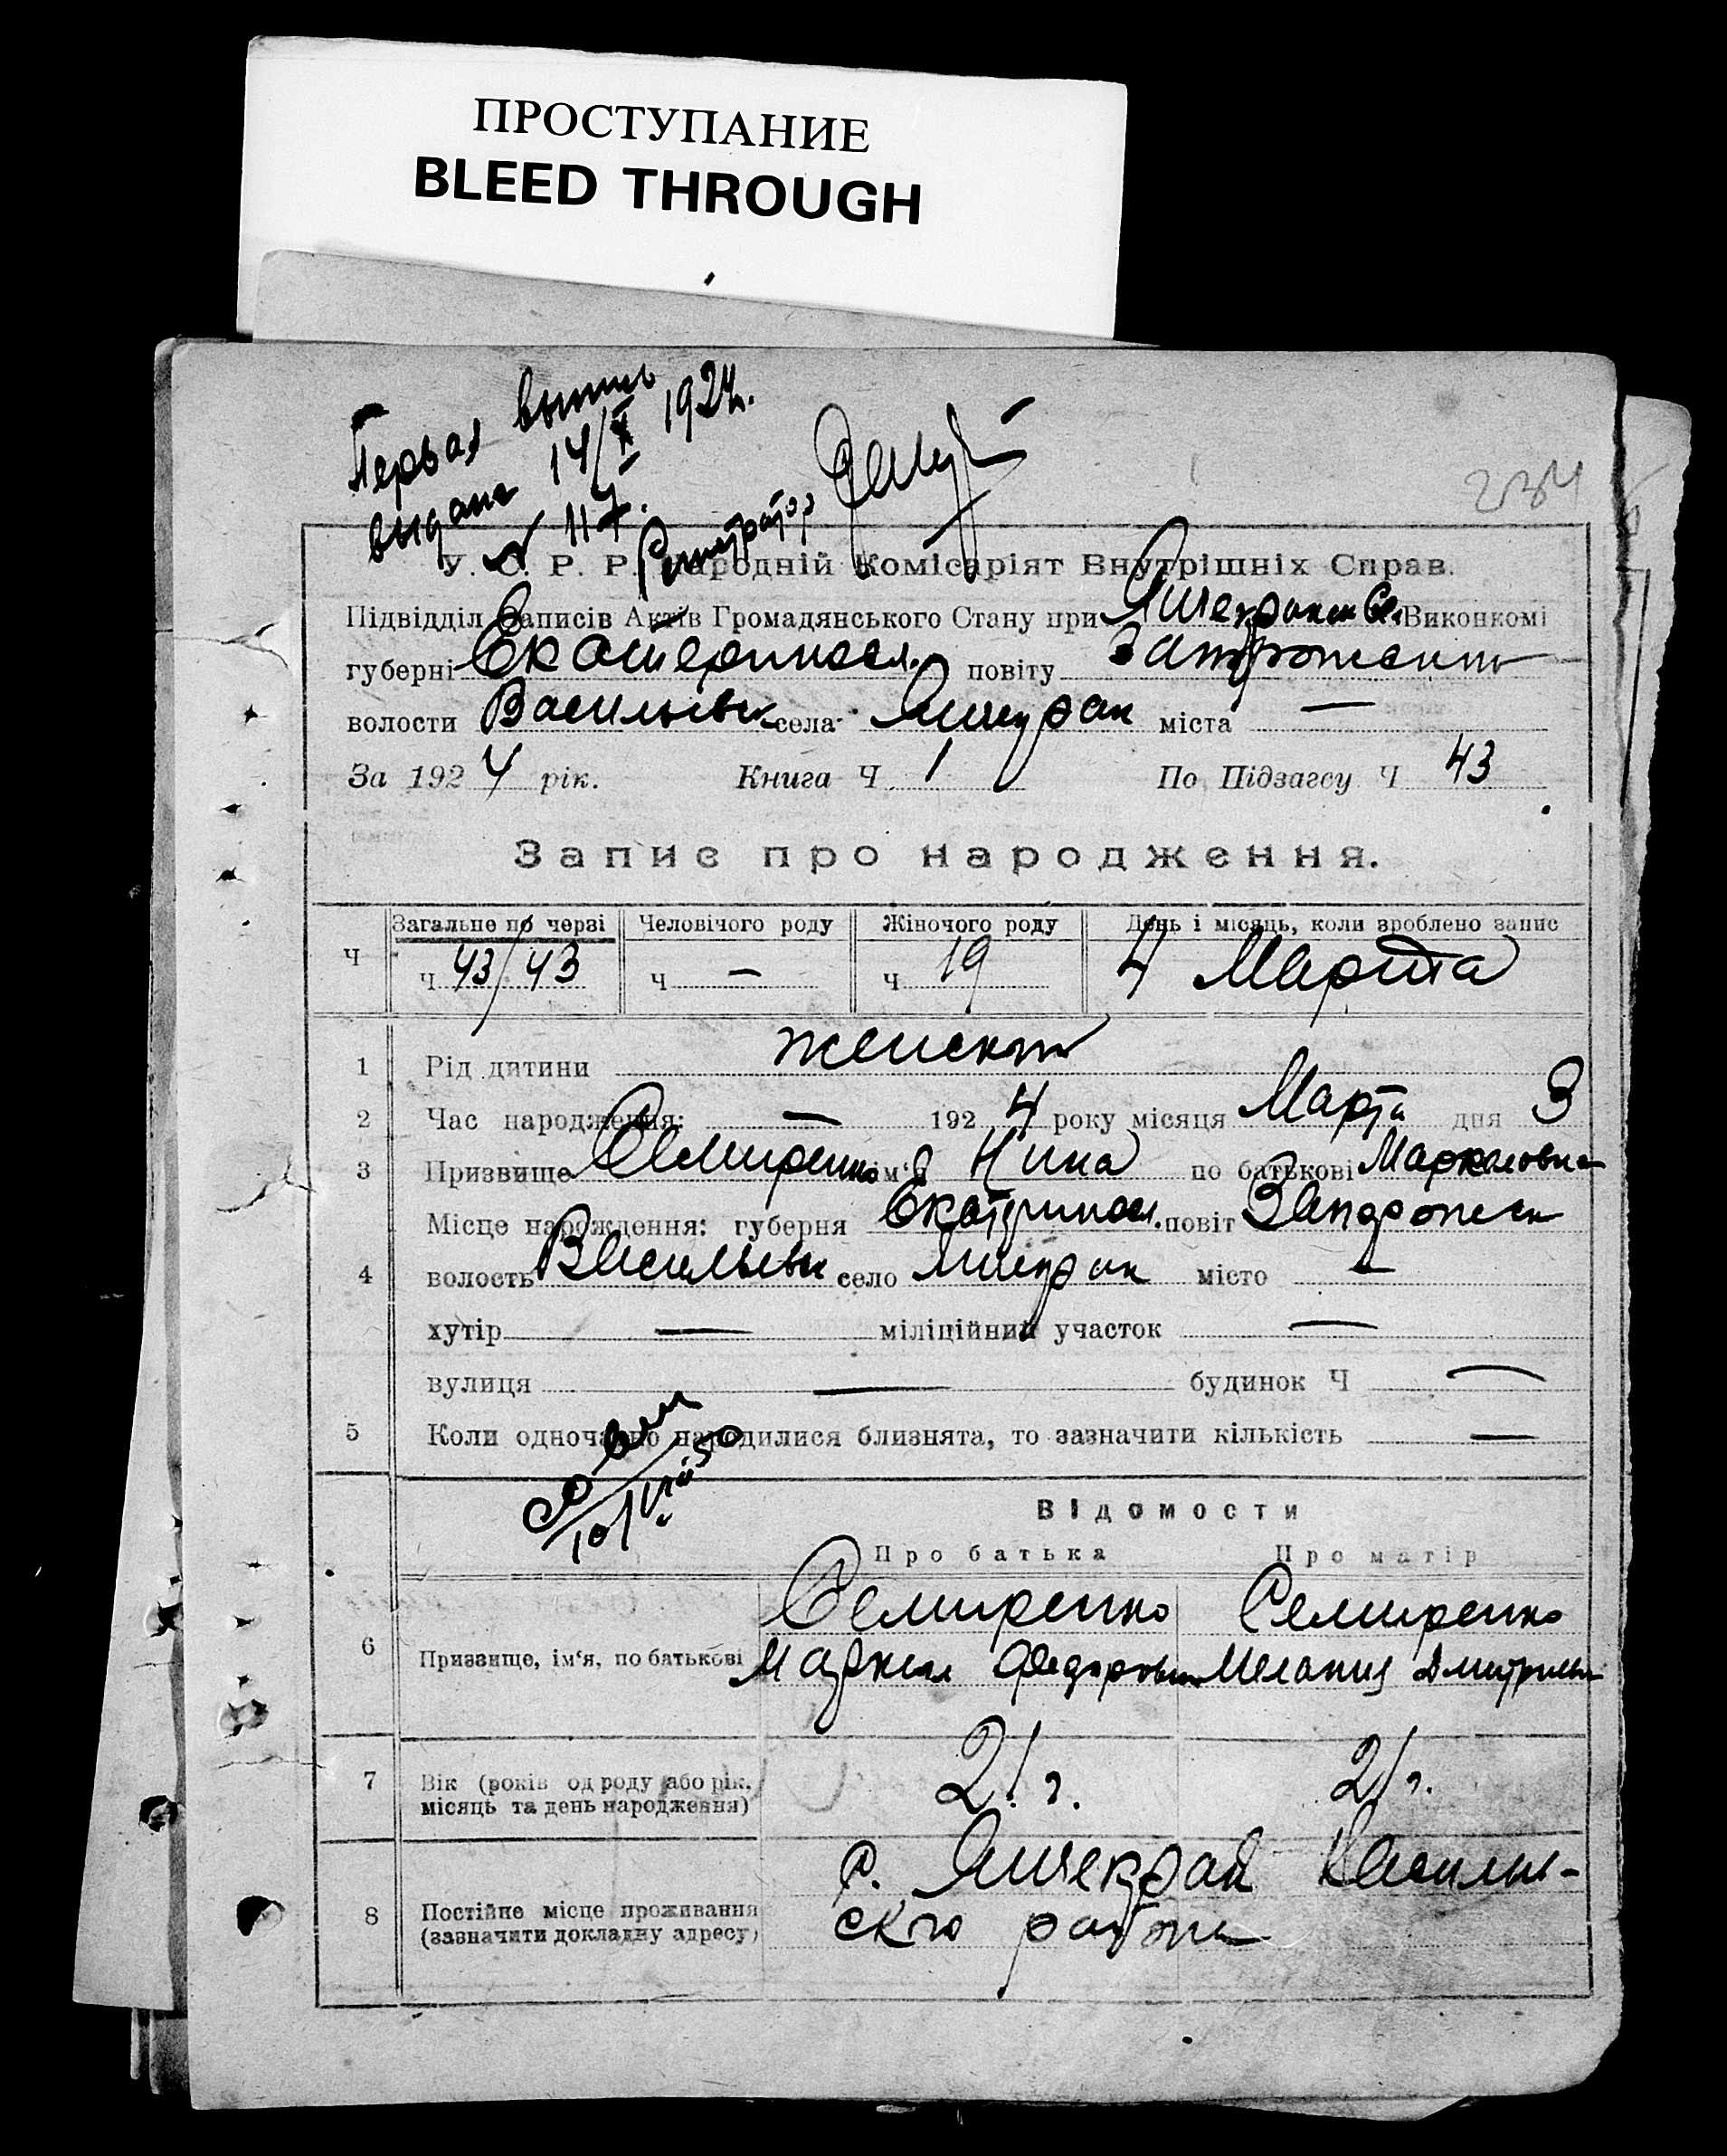 ПРОСТУПАНИЕ
BLEED THROUGH
Первая выпись
выдана 14/X 1924г.
№ 117.
Регистратор
234
У. С. Р. Р. Народній Комісаріят Внутрішніх Справ.
Підвідділ Записів Актів Громадянського Стану при Виконкомі
губерні Екатериносл. повіту
волости Васильевск села міста —
За 1924 рік. Книга Ч 1 По Підзагсу Ч 43
Запис про народження.
Ч Загальне по черзі Человічого роду Жіночого роду День і місяць, коли зроблено запис
Ч 43/43 Ч — Ч 19 4 Марта
1 Рід дитини женский
2 Час народження: — 1924 року місяця Марта дня 3
3 Призвище Семиренко ім'я Нина по батькові Маркеловна
Місце народження: губерня Екатериносл. повіт Запорожск
4 волость Васильевск село місто —
хутір — міліційний участок —
вулиця — будинок Ч —
5 Коли одночасно народилися близнята, то зазначити кількість —
10/VIII 50
Відомости
Про батька Про матір
Семиренко Семиренко
6 Призвище, ім'я, по батькові Маркел Федорович Мелания Дмитриевн
7 Вік (років од роду або рік, місяць та день народження) 21 г. 21 г.
с. Янчекрак Васильев-
8 Постійне місце проживання (зазначити докладну адресу) ского района